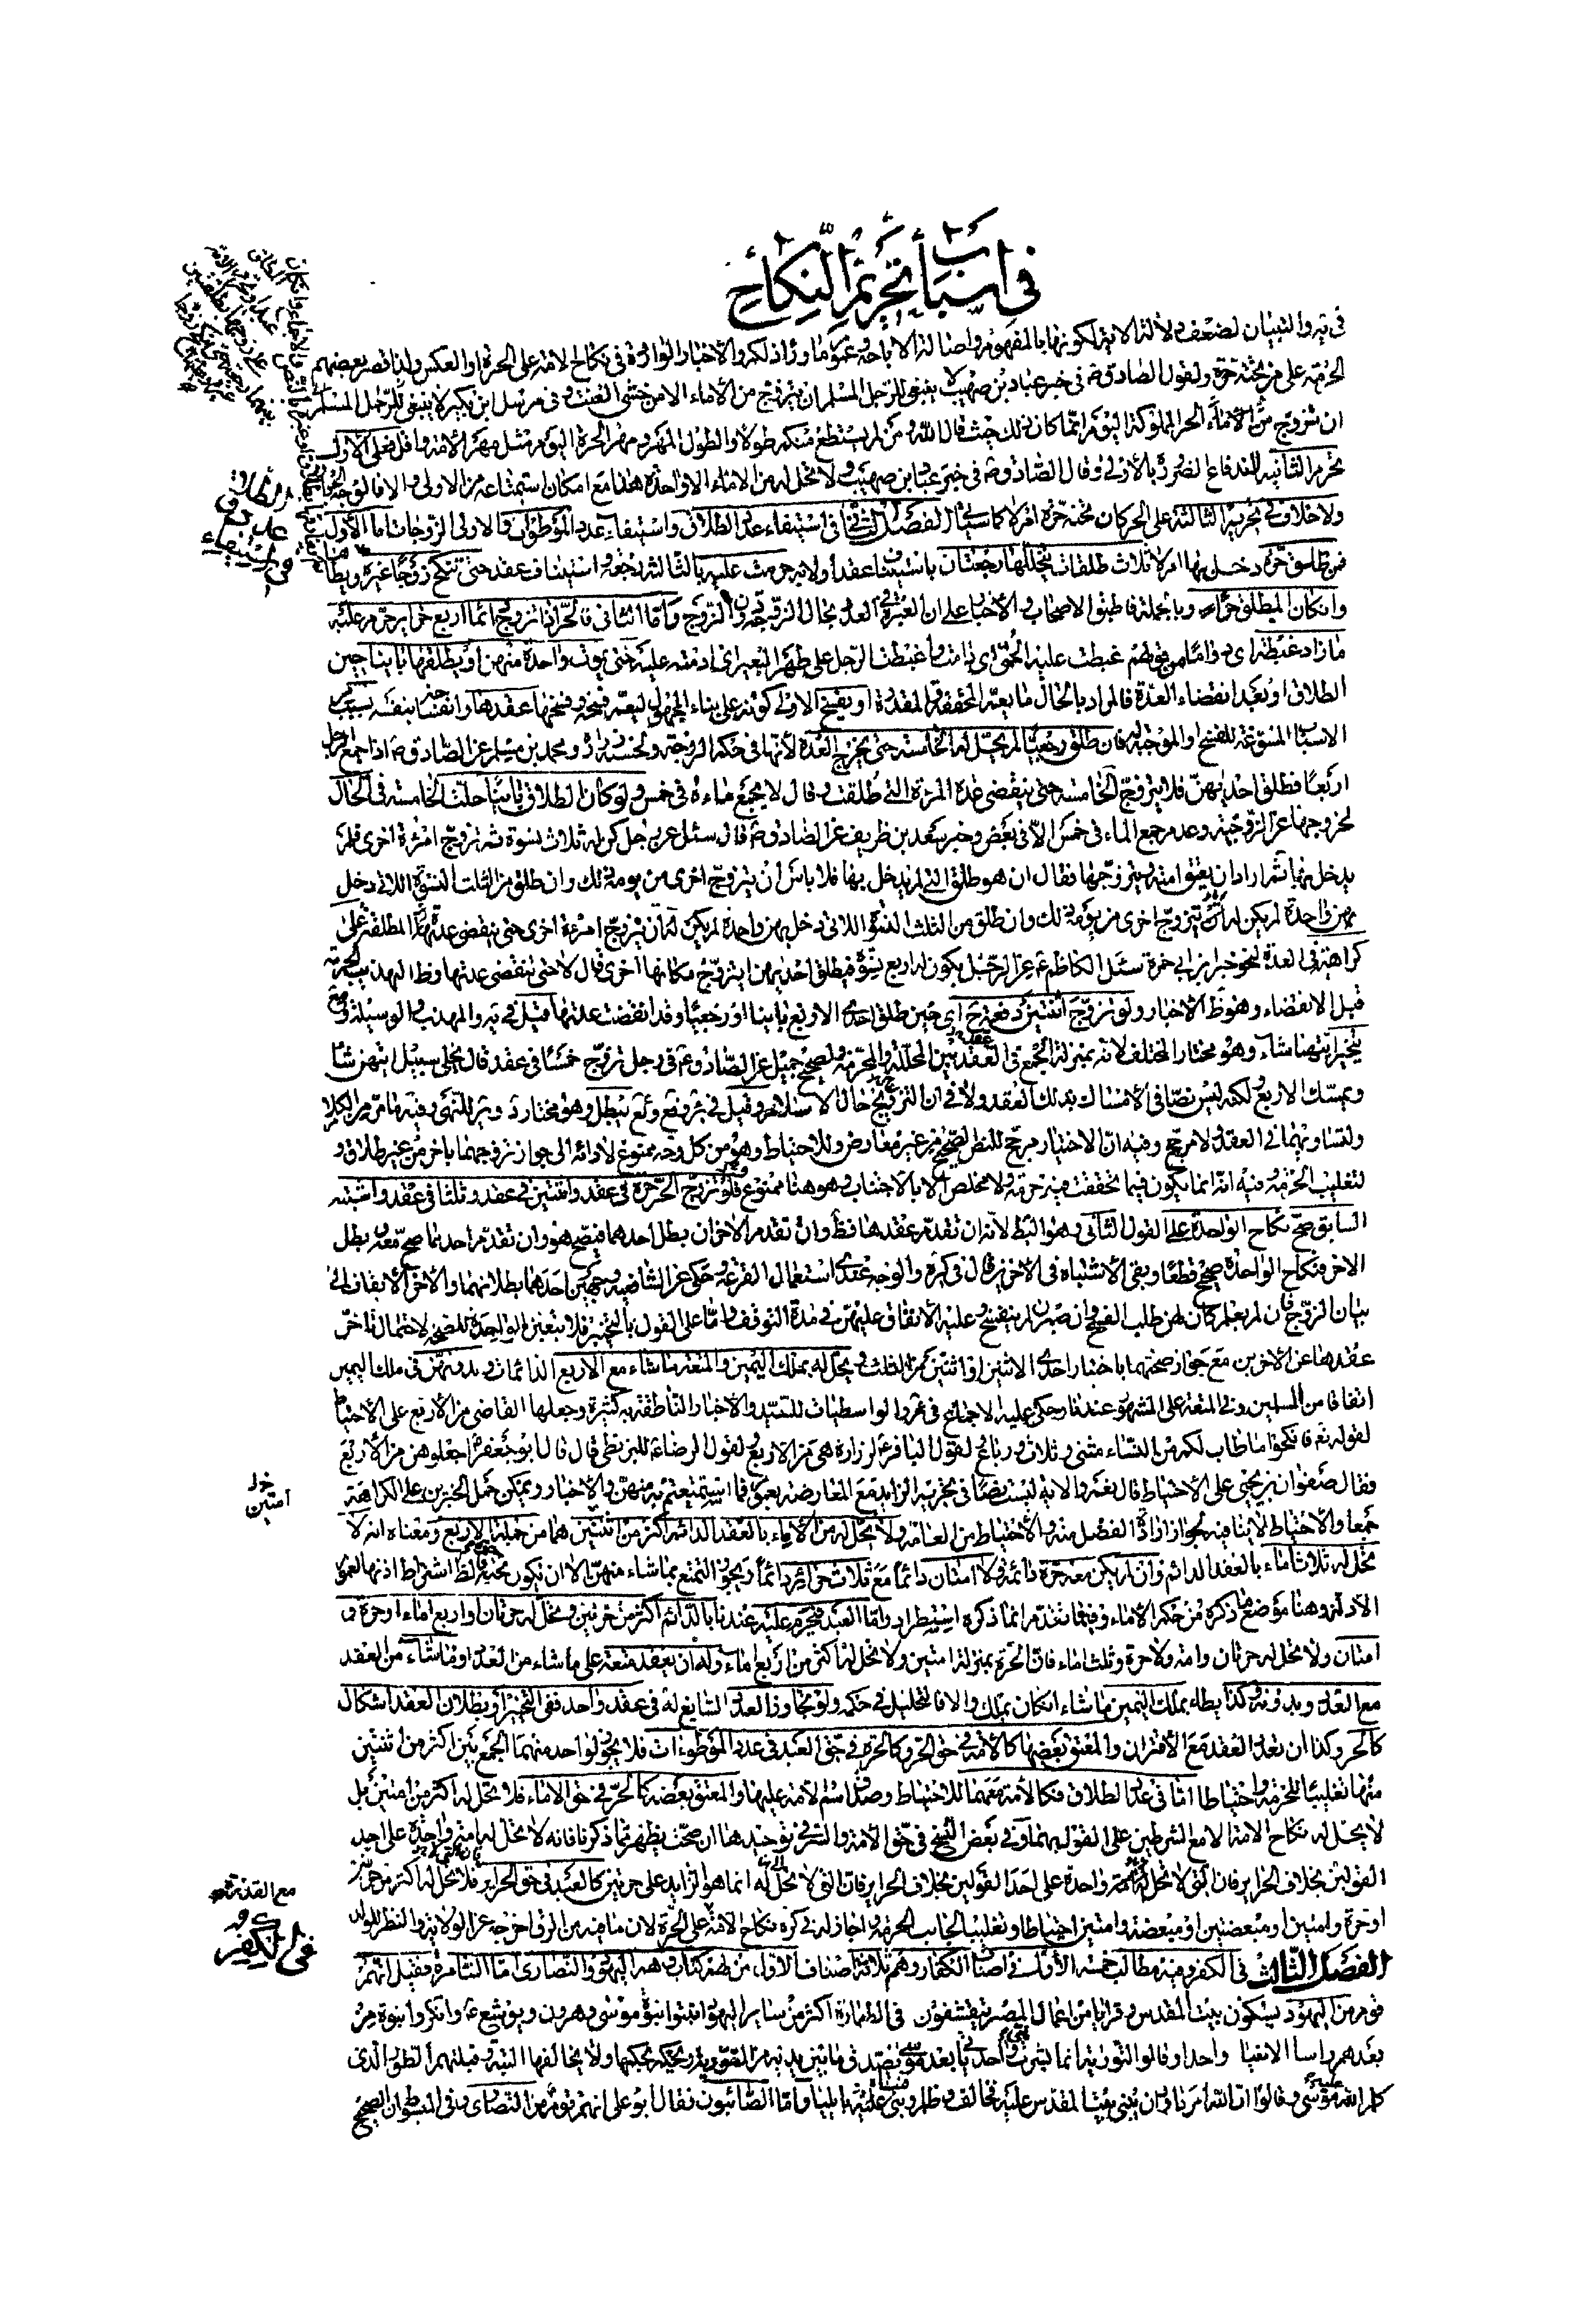 في اسباب تحريم النكاح
في يه والتبيان لضعف دلالة الاية لكونها بالمفهوم واصالة الاباحة وعموم ما وراء ذلكم والاخبار الواردة في نكاح الامة على الحرة او العكس ولذا قصر بعضهم
الحرمة على من تحته حرة ولقول الصادق ع في خبر عباد بن صهيب لا ينبغي للرجل المسلم ان يتزوج من الاماء الا من خشي العنت وفي مرسل ابن بكير لا ينبغي للرجل المسلم
ان يتزوج من الاماء الحر المملوكة اليوم انما كان ذلك حيث قال الله ومن لم يستطع منكم طولا والطول المهر ومهر الحرة اليوم مثل مهر الامة واقل فعلى الاول
تحرم الثانية لاندفاع الضرورة بالاولى وقال الصادق ع في خبر عباد بن صهيب ولا تحل له من الاماء الا واحدة هذا مع امكان استمتاعه من الاولى والا فالوجه الجواز
ولا خلاف في تحريم الثالثة على الحر كان تحته حرة ام لا كما سيأتي الفصل الثاني في استيفاء عدد الطلاق واستيفاء عدد الموطوءات فالاولى الزوجات اما الاول
فمن طلق حرة دخل بها ام لا ثلاث طلقات يتخللها رجعتان باستيناف عقد او لا به حرمت عليه بالثالثة رجعة واستيناف عقد حتى تنكح زوجا غيره ويطأها
وان كان المطلق حرا وبالجملة فاطبق الاصحاب والاخبار على ان العبرة في العدد بحال الزوجة دون الزوج واما الثاني فالحر اذا تزوج دائما اربع حراير حرم عليه
ما زاد غبطة اي دواما من قولهم غبطت عليه الحمى اي دامت واغبطت الرحل على ظهر البعير اي ادمته عليه حتى يموت واحدة منهن او يطلقها باينا حين
الطلاق او بعد انقضاء العدة فالمراد بالحال ما يعم المحققة والمقدرة او يفسخ الاولى كونه على بناء المجهول ليعم فسخه وفسخها عقدها وانفساخه بنفسه بسبب من
الاسباب المسوغة للفسخ او الموجبة له فان طلق رجعيا لم تحل له الخامسة حتى تخرج العدة لانها في حكم الزوجة ولحسنة زرارة ومحمد بن مسلم عن الصادق ع اذا جمع الرجل
اربعا فطلق احديهن فلا يتزوج الخامسة حتى ينقضي عدة المرأة التي طلقت وقال لا يجمع ماءه في خمس ولو كان الطلاق باينا حلت الخامسة في الحال
لخروجها عن الزوجية وعدم جمع الماء في خمس الا في بعض وخبر سعد بن ظريف عن الصادق ع قال سئل عن رجل كن له ثلاث نسوة ثم تزوج امرأة اخرى فلم
يدخل بها ثم اراد ان يعتق امته ويتزوجها فقال ان هو طلق التي لم يدخل بها فلا باس ان يتزوج اخرى من يومه ذلك وان طلق من الثلث النسوة اللاتي دخل
بهن واحدة لم يكن له ان يتزوج اخرى من يومه ذلك وان طلق من الثلث النسوة اللاتي دخل بهن واحدة لم يكن له ان يتزوج امرأة اخرى حتى ينقضي عدة المطلقة على
كراهية في العدة لنحو خبر ابن ابي حمزة سئل الكاظم ع عن الرجل يكون له اربع نسوة فيطلق احديهن ايتزوج مكانها اخرى قال لا حتى تنقضي عدتها وظ التهذيب الحرمة
قبل الانقضاء وهو ظ الاخبار ولو تزوج اثنتين دفعة ح اي حين طلق احدى الاربع باينا او رجعيا وقد انقضت عدتها قيل في يه والمهذب والوسيلة وضع
يتخير ايتهما شاء وهو مختار المختلف لانه بمنزلة الجمع في العقد بين المحللة والمحرمة ولصحيح جميل عن الصادق ع في رجل تزوج خمسا في عقد قال يخلي سبيل ايتهن شاء
ويمسك الاربع لكنه ليس نصا في الامساك بذلك العقد ولا في ان التزويج حال الاسلام وقيل في ئر وفع ويع يبطل وهو مختار د وير للنهي وفيه ما مر من الكلام
ولتساويهما في العقد ولا مرجح وفيه ان الاختيار مرجح للنص الصحيح من غير معارض وللاحتياط وهو من كل وجه ممنوع لادائه الى جواز تزوجها باخر من غير طلاق و
لتغليب الحرمة وفيه انه انما يكون فيما تحققت فيه حرمة ولا مخلص الا بالاجتناب وهو هنا ممنوع فلو تزوج الحر حرة في عقد واثنتين في عقد وثلثا في عقد واشتبه
السابق صح نكاح الواحدة على القول الثاني وهو البطلان لانه ان تقدم عقدها فظ وان تقدم الاخران بطل احدهما فيصح هو وان تقدم احدهما صح معه وبطل
الاخر فنكاح الواحدة صحيح قطعا وبقي الاشتباه في الاخرين قال في كره والوجه عندي استعمال القرعة وحكى عن الشافعية وجهين احدهما بطلانهما والاخر الايقاف الى
بيان الزوج فان لم يعلم كان لهن طلب الفسخ وان صبرن لم ينفسخ وعليه الانفاق عليهن في مدة التوقف واما على القول بالتخيير فلا يتعين الواحدة للصحة لاحتمال تاخر
عقدها عن الاخرين مع جواز صحتهما باختيار احدى الاثنتين او اثنتين من الثلث ويحل له بملك اليمين والمتعة ما شاء مع الاربع الدائمات وبدونهن في ملك اليمين
اتفاقا من المسلمين وفي المتعة على المشهور عندنا وحكي عليه الاجماع في ئر والواسطيات للسيد والاخبار الناطقة به كثيرة وجعلها القاضي من الاربع على الاحتياط
لقوله تع فانكحوا ما طاب لكم من النساء مثنى وثلاث ورباع ولقول الباقر ع لزرارة هي من الاربع ولقول الرضا ع للبزنطي قال قال ابو جعفر ع اجعلوهن من الاربع
فقال صفوان بن يحيى على الاحتياط قال نعم والاية ليست نصا في تحريم الزايد مع المعارضة بعموم فما استمتعتم به منهن والاخبار ويمكن حمل الخبرين على الكراهة
جمعا والاحتياط لا ينافيه لجواز ارادة الفضل منه والاحتياط من العامة ولا يحل له من الاماء بالعقد الدائم اكثر من اثنتين هما من جملة الاربع ومعناه انه لا
تحل له ثلاث اماء بالعقد الدائم وان لم يكن معه حرة دائمة ولا امتان دائما مع ثلاث حراير دائما ويجوز التمتع بما شاء منهن الا ان تكون تحته حرة فالظ اشتراط اذنها لعموم
الادلة وهنا موضع ما ذكره من حكم الاماء وفيما تقدم انما ذكره استطراد واما العبد فيحرم عليه عندنا بالدائم اكثر من حرتين وتحل له حرتان او اربع اماء او حرة و
امتان ولا تحل له حرتان وامة ولا حرة وثلث اماء فان الحرة بمنزلة امتين ولا تحل له اكثر من اربع اماء وله ان يعقد متعة على ما شاء من العدد او ما شاء من العقد
مع العدد وبدونه وكذا يطأ بملك اليمين ما شاء ان كان يملك والا فالتحليل في حكمه ولو تجاوز العدد السايغ له في عقد واحد ففي التخيير او بطلان العقد اشكال
كالحر وكذا ان تعدد العقد مع الاقتران والمعتق بعضها كالامة في حق الحر وكالحرة في حق العبد في عدد الموطوءات فلا يجوز لواحد منهما الجمع بين اكثر من اثنتين
منها تغليبا للحرمة واحتياطا اما في عدد الطلاق فكالامة معهما للاحتياط وصدق اسم الامة عليها والمعتق بعضه كالحر في حق الاماء فلا تحل له اكثر من امتين بل
لا يحل له نكاح الامة الا مع الشرطين على القول بهما وفي بعض النسخ في حق الامة والسر في توحيدها ان صحت يظهر مما ذكر فانه لا تحل له امة واحدة على احد
القولين بخلاف الحراير فان التي لا تحل له امة واحدة على احد القولين بخلاف الحراير فان التي لا تحل له انما هو الزايد على حرتين كالعبد في حق الحراير فلا تحل له اكثر من حرتين
او حرة وامتين او مبعضتين او مبعضة وامتين احتياطا وتغليبا لجانب الحرمة واجاز له في كره نكاح الامة على الحرة لان ما فيه من الرق اخرجه عن الولاية والنظر للولد
الفصل الثالث في الكفر وفيه مطالب خمسة الاول في اصناف الكفار وهم ثلاثة اصناف الاول من لهم كتاب وهم اليهود والنصارى اما السامرة فقيل انهم
قوم من اليهود يسكنون بيت المقدس وقرايا من اعمال المصر يتقشفون في الطهارة اكثر من ساير اليهود اثبتوا نبوة موسى وهرون ويوشع ع وانكروا نبوة من
بعدهم راسا الا نبيا واحدا وقالوا التورية انما بشرت بنبي واحد يأتي بعد موسى يصدق ما بين يديه من التورية ويحكم بحكمها ولا يخالفها البتة وقبلتهم الطور الذي
كلم الله عليه موسى وقالوا ان الله امر داود ان يبني بيت المقدس عليه فخالف وظلم وبنى بايليا واما الصائبون فقال ابو علي انهم قوم من النصارى وفي المبسوط ان الصحيح
في استيفاء
عدد
الطلاق
خل
امتين
مع القدرة
في الكفر